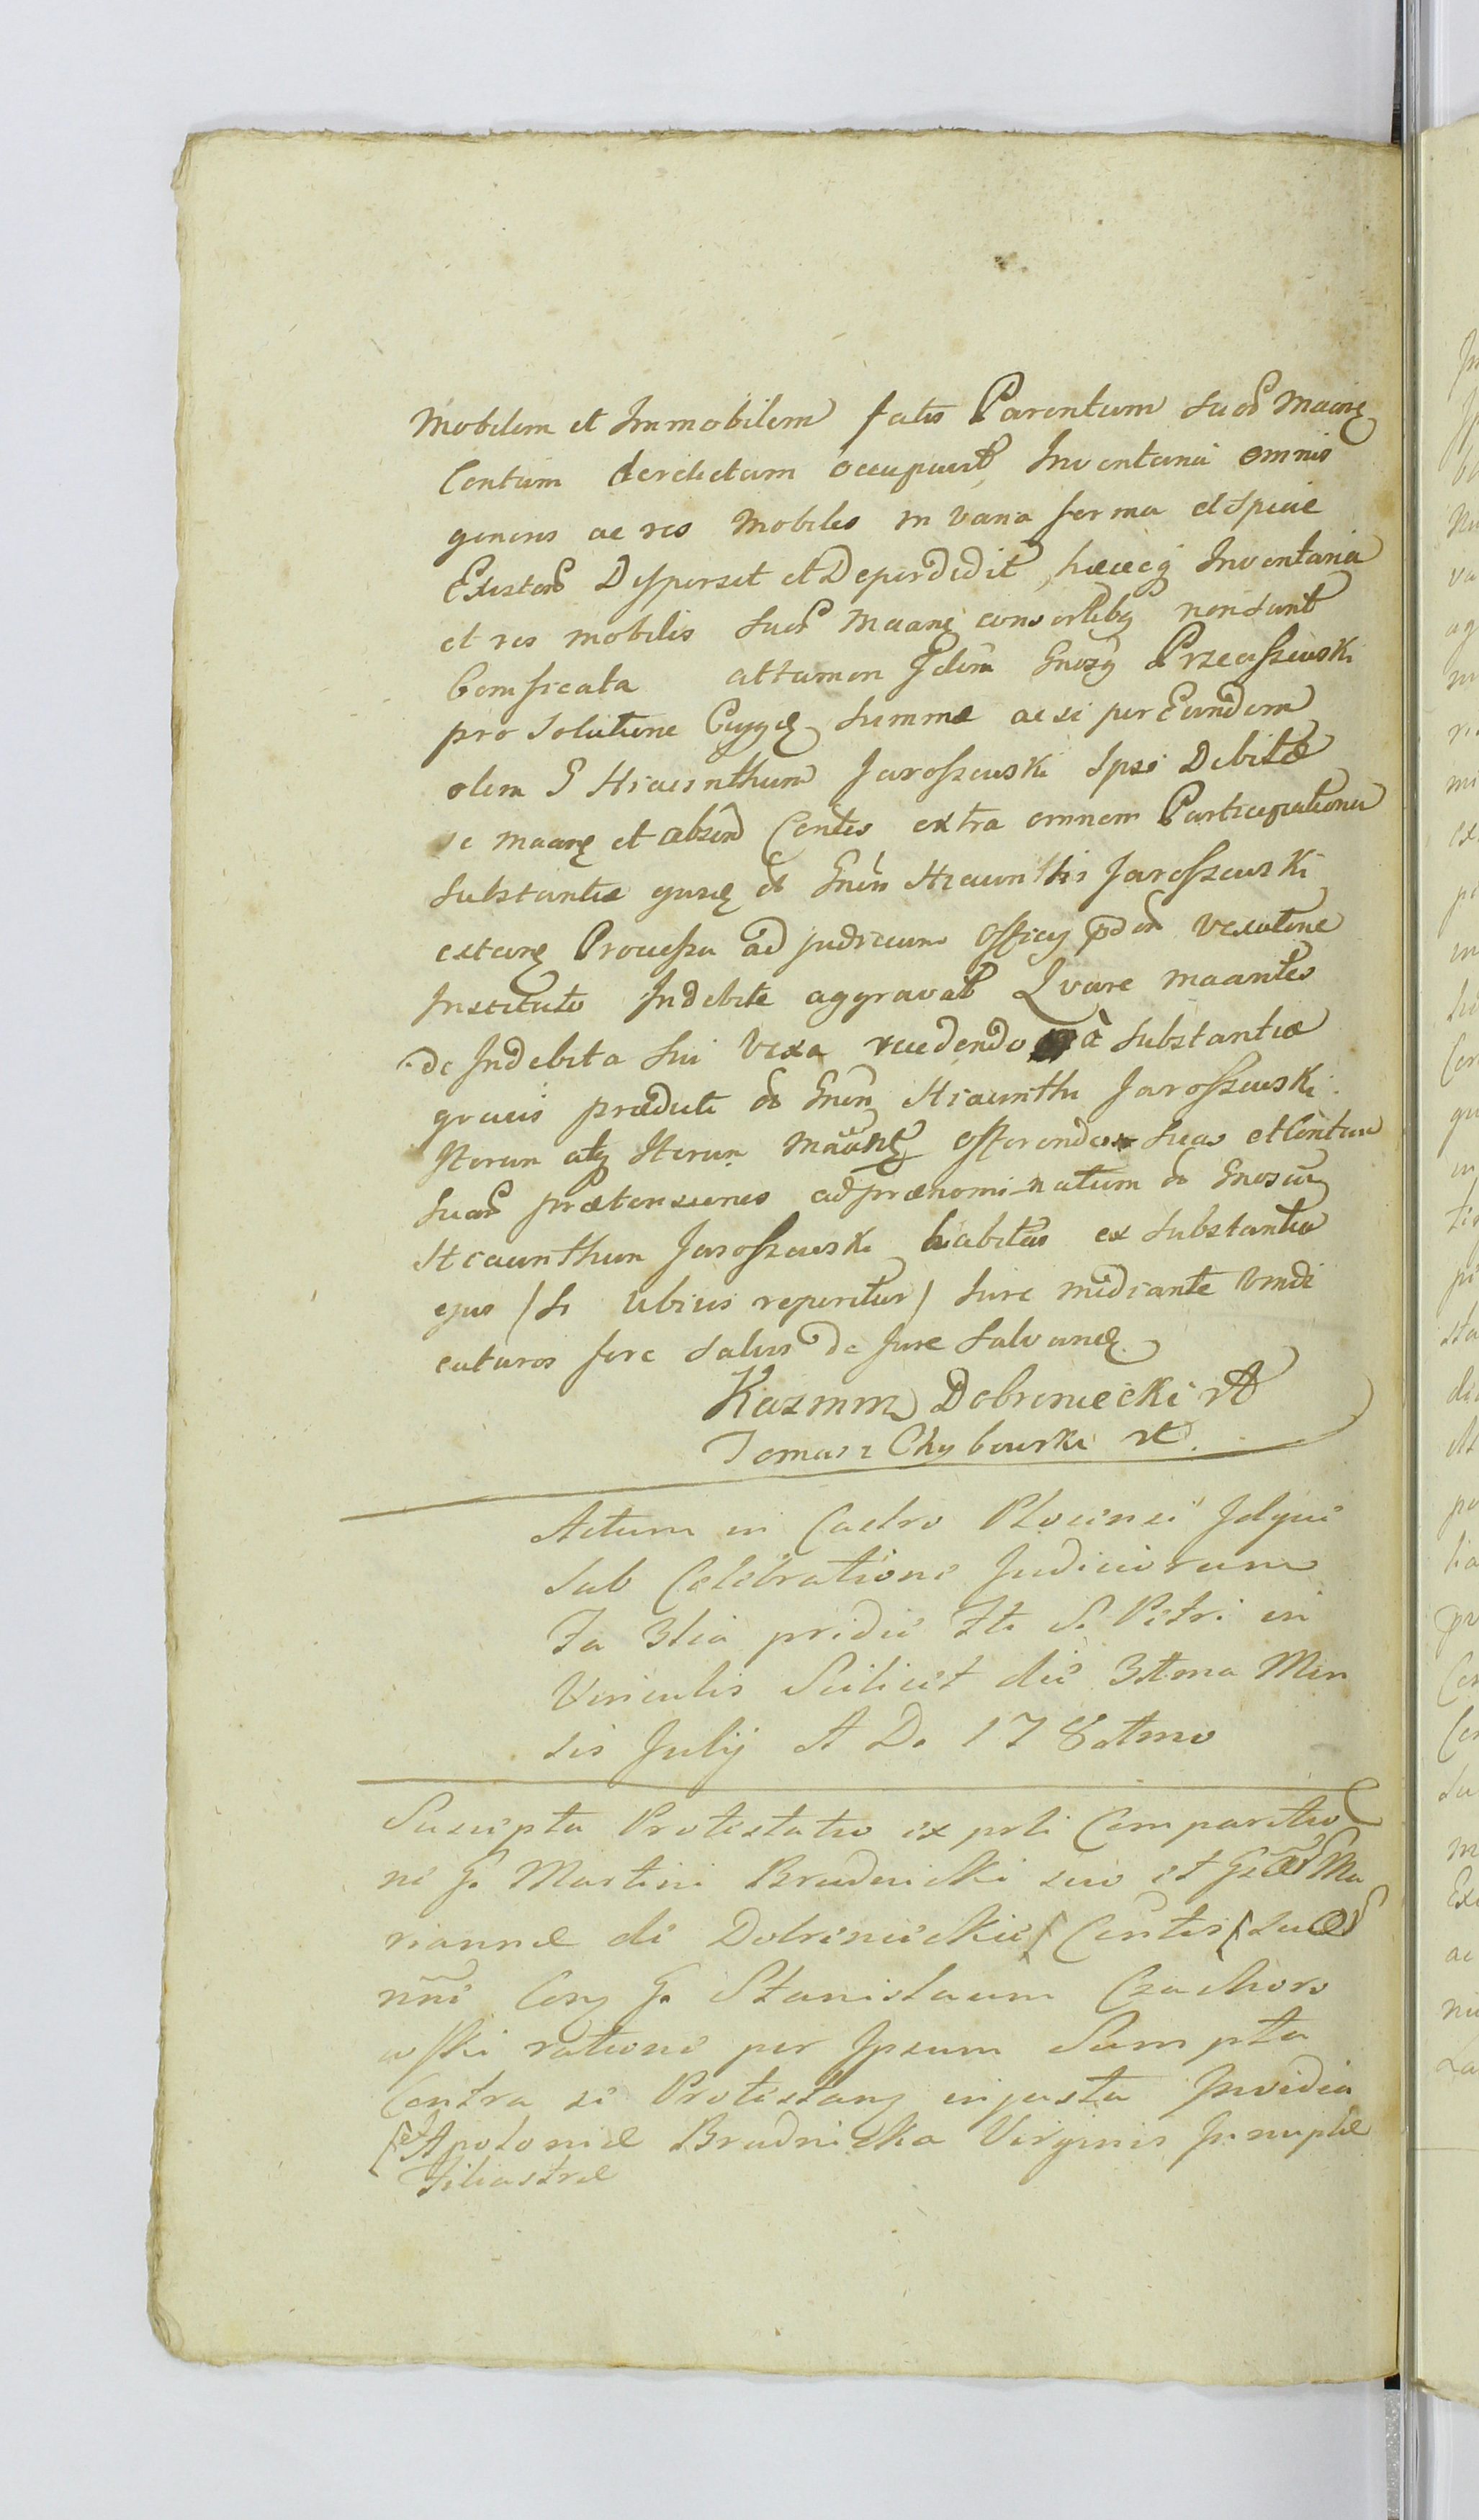 Mobilem et Immobilem fatis Parentum suor Maang
Contum derelictam occupavit, Inventaria omnis
generis ac res Mobiles in varia forma et specie
Existen Dispersit et Deperdidit, hæcq Inventaria
et res mobilis suor Maang consortibq non sunt
bonificata attamen Idem Gnosq Przeciszewski
pro solutione Cujqꝫ summæ ac si per Eundem
olim G Hiacinthum Jaroszewski Ipsi Debitæ
se maang et absen Centes extra omnem Participationem
substantiæ Gnsi Hiacinthi Jaroszewski
extang Processu ad judicium Officij vexatione
Instituto Indebite aggravat Quare maantes
de Indebita sui vexa recedendo à substantia
gravis prædicti ol Gnsi Hiacinthi Jaroszewski
Iterum atq Iterum Maant offerendo suas et Centum
suar prætensiones ad prænominatum ol Gnosum
Hiacinthum Jaroszewski habitas ex substantia
ejus (si ubivis reperitur) Jure mediante vindi
caturos fore salvis de Jure salvandꝫ
Kazmirz Dobrzniecki
Tomasz Chybowski
Actum in Castro Plocensi Idque
sub Celebratione Judiciorum
Fa 3tia pridie fti S. Petri in
Vinculis Scilicet die 31ma Men
sis Julij A D. 178tmo
Suscepta Protestatio ex prti Comparitio
ne G. Martini Brudnicki suo et Ma
riannæ de Dobrznieckie (Centis( suæ
nni Con G. Stanislaum Czachoro
wski ratione per Ipsum Sumpta
Contra se Protestang injusta Invidia
(et Apoloniæ Brudnicka Virginis Innuptæ
Filiastræ